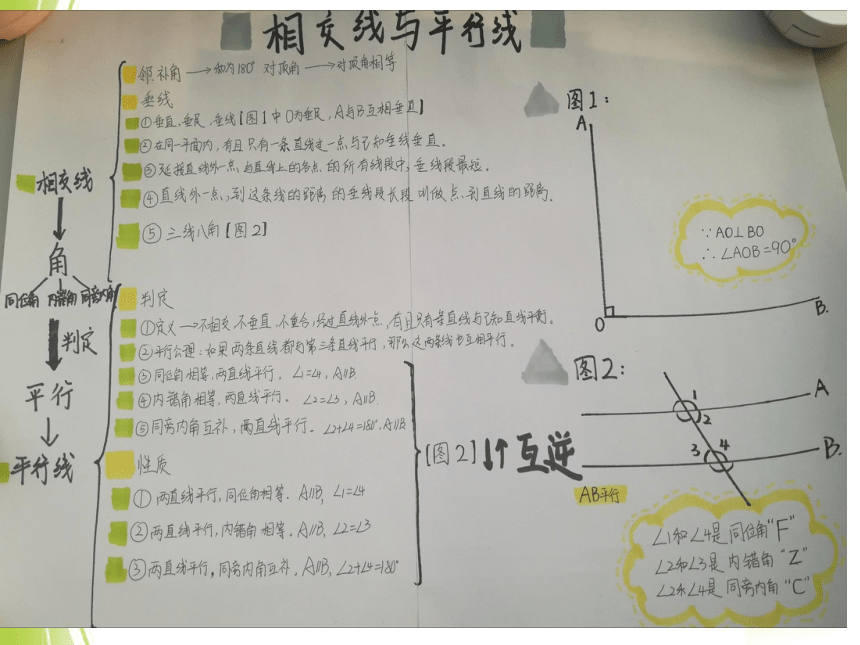 相交线与平行线
相交线
角
同位角 内错角 同旁内角
判定
平行
平行线
邻补角→和为180° 对顶角→对顶角相等
垂线
①垂直,垂足,垂线【图1中O为垂足,A与B互相垂直】
②在同一平面内,有且只有一条直线过一点与已知垂线垂直.
③连接直线外一点,与直线上的各点,的所有线段中,垂线段最短.
④直线外一点,到这条线的距离的垂线段长段叫做点到直线的距离.
⑤三线八角【图2】
判定
①定义→不相交,不垂直,不重合,经过直线外一点,有且只有一条直线与已知直线平衡.
②平行公理:如果两条直线都与第三条直线平行,那么这两条线也互相平行.
③同位角相等,两直线平行. ∠1=∠4, A∥B.
④内错角相等,两直线平行. ∠2=∠3, A∥B.
⑤同旁内角互补,两直线平行. ∠2+∠4=180°.A∥B
性质
①两直线平行,同位角相等. A∥B, ∠1=∠4
②两直线平行,内错角相等. A∥B, ∠2=∠3
③两直线平行,同旁内角互补, A∥B, ∠2+∠4=180°
[图2]↓↑互逆
图1:
A
O
B.
∵AO⊥BO
∴∠AOB=90°
图2:
1
2
A
3
4
B.
AB平行
∠1和∠4是同位角“F”
∠2和∠3是内错角“Z”
∠2和∠4是同旁内角“C”